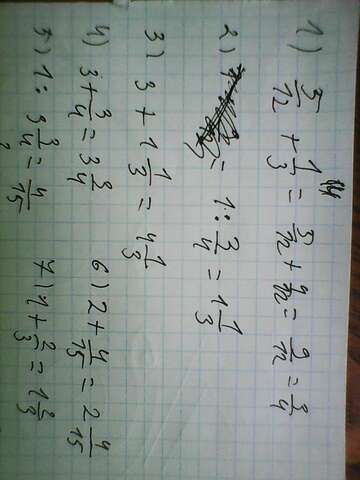 1) 5/12 + 1/3 = 5/12 + 4/12 = 9/12 = 3/4
2) = 1 : 3/4 = 1 1/3
3) 3 + 1 1/3 = 4 1/3
4) 3 + 3/4 = 3 3/4
5) 1 : 3 3/4 = 4/15
6) 2 + 4/15 = 2 4/15
7) 1 + 2/3 = 1 2/3